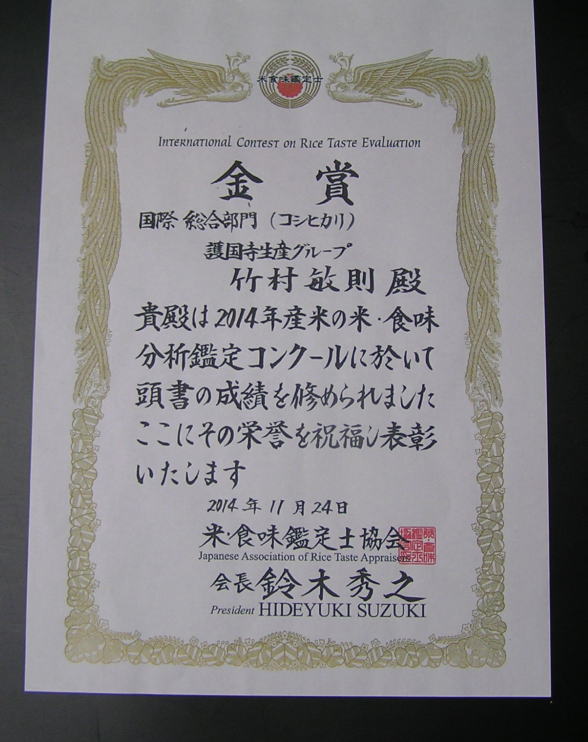 米食味鑑定士
International Contest on Rice Taste Evaluation
金賞
国際 総合部門 (コシヒカリ)
護国寺生産グループ
竹村敏則 殿
貴殿は2014年産米の米・食味
分析鑑定コンクールに於いて
頭書の成績を修められました
ここにその栄誉を祝福し表彰
いたします
2014年11月24日
米・食味鑑定士協会
Japanese Association of Rice Taste Appraisers
会長 鈴木秀之
President HIDEYUKI SUZUKI